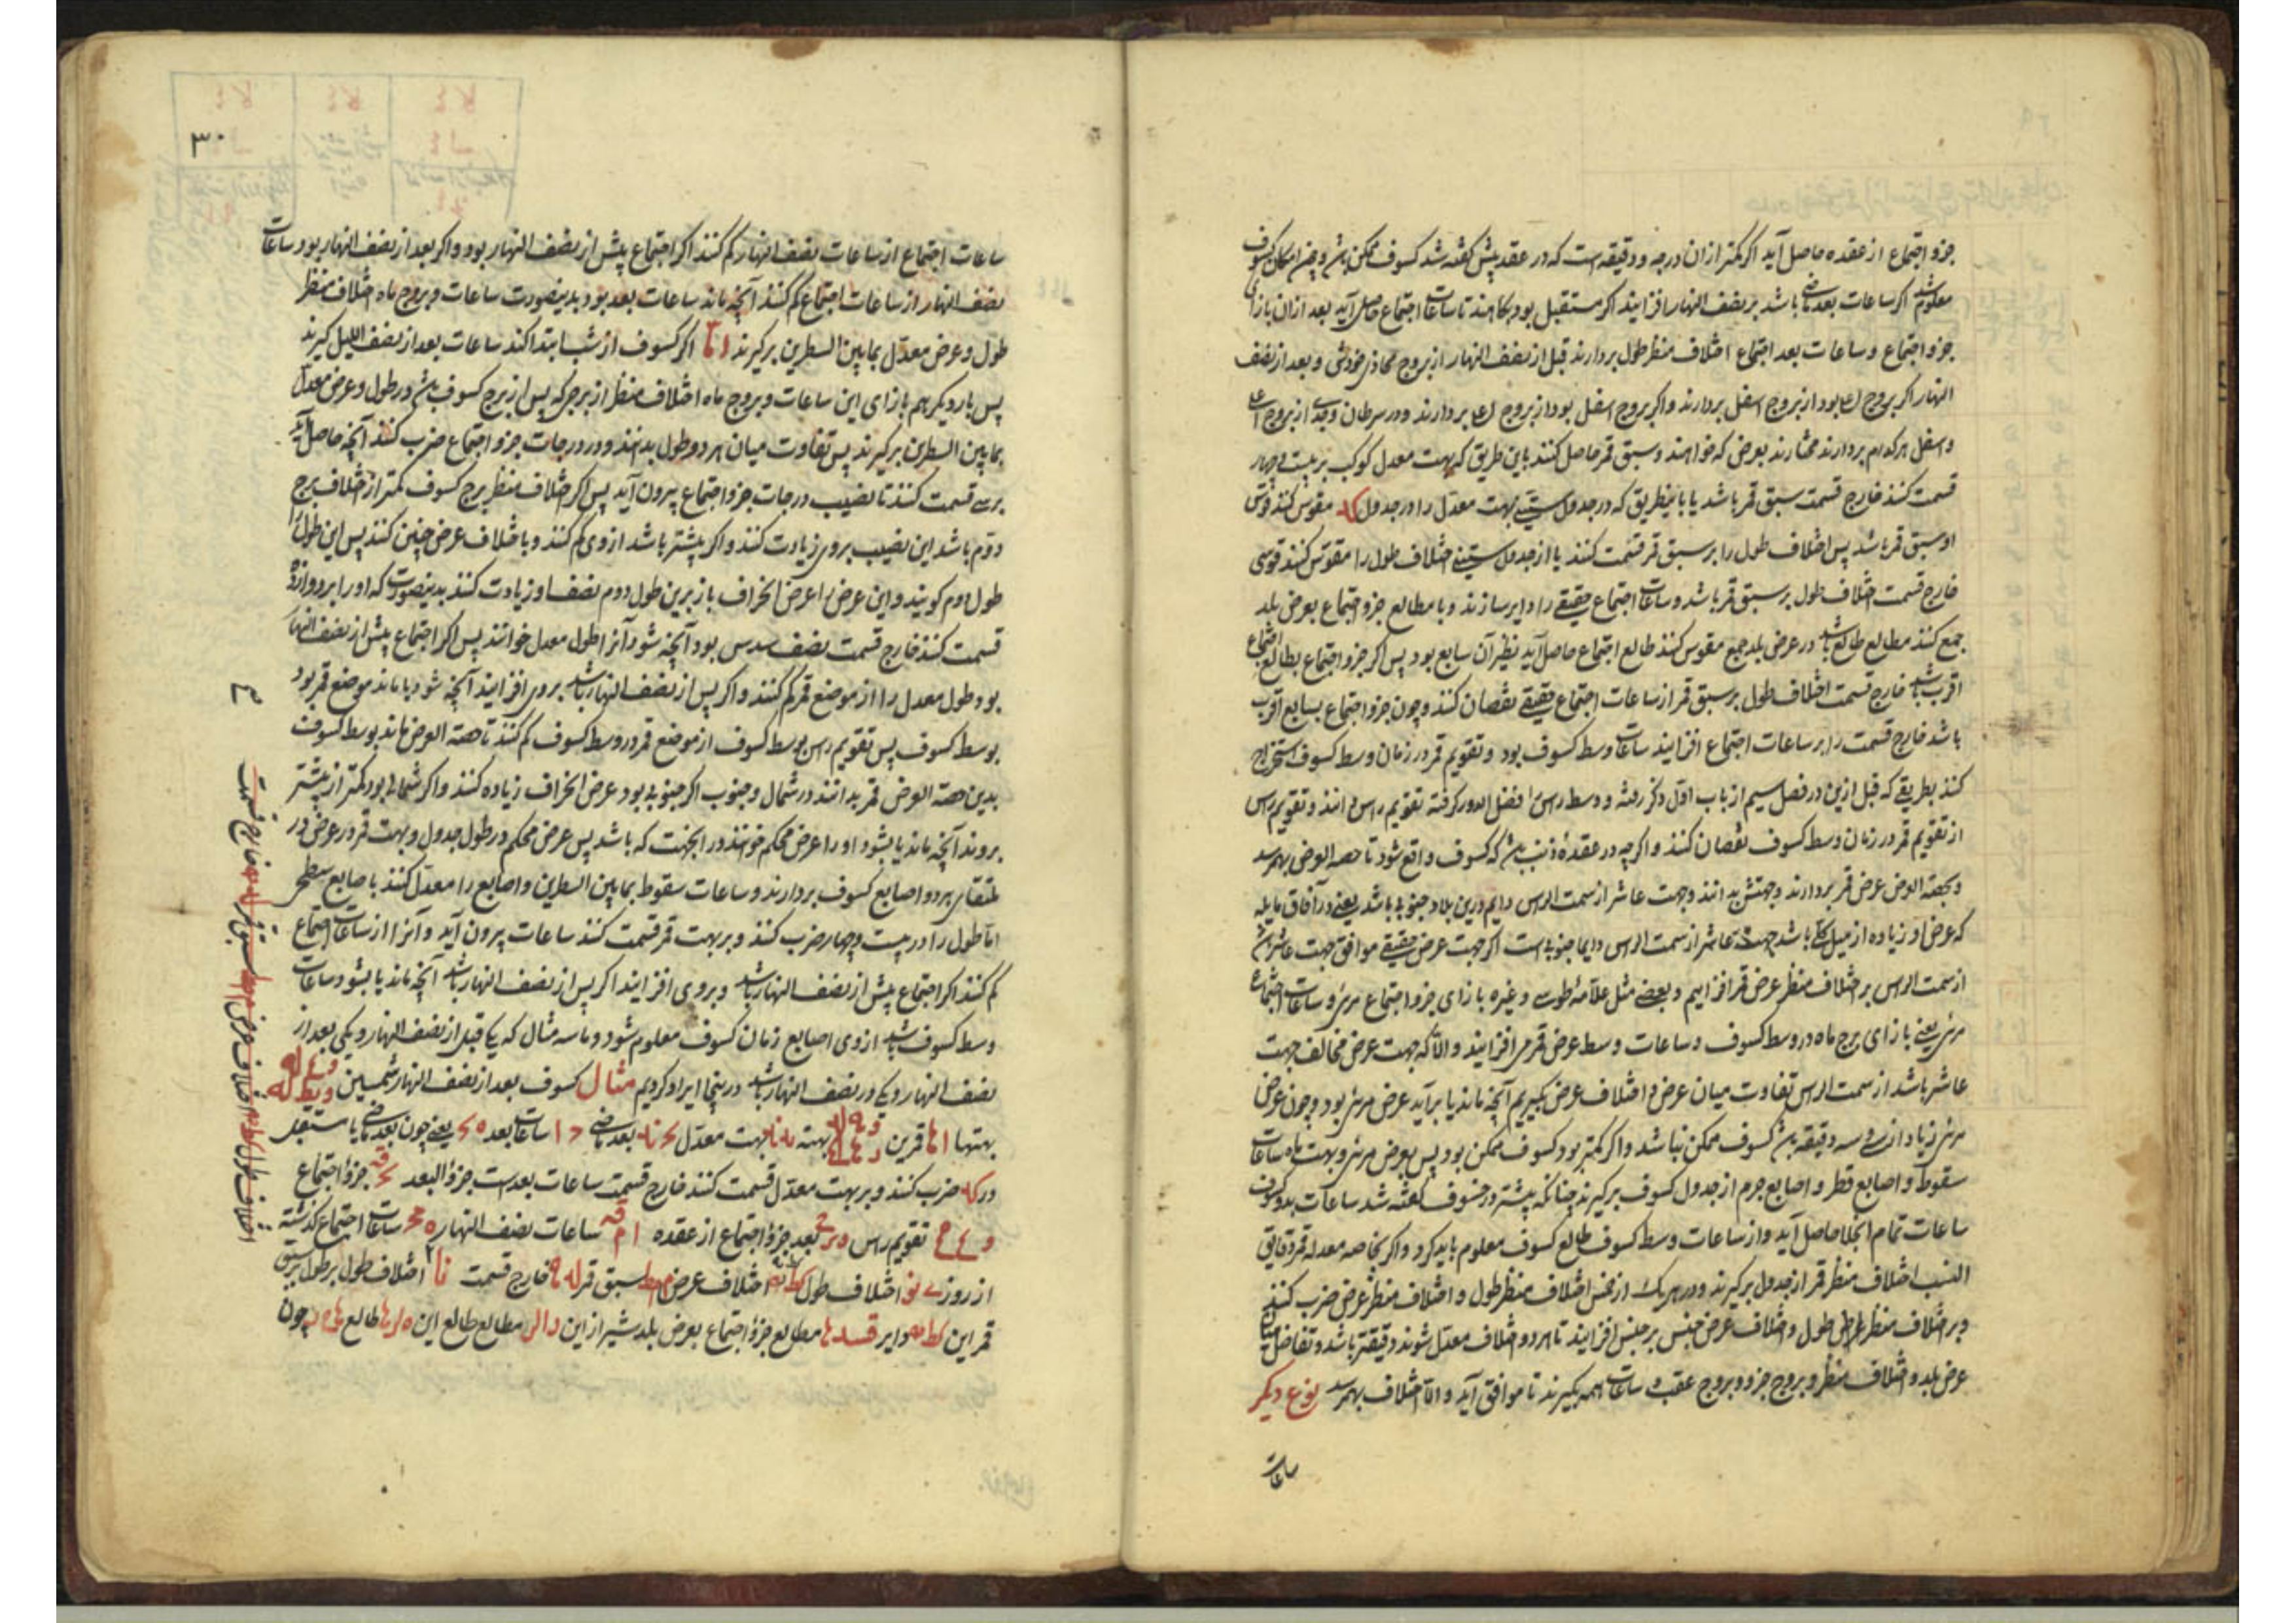 جزو اجتماع از عقده حاصل آید اگر کمتر از ان درجه و دقیقه است که در عقد پیش گفته شد کسوف ممکن باشد و چون امکان کسوف
معلوم شد اگر ساعات بعد ماضی باشد بر نصف النهار افزایند اگر مستقبل بود بکاهند تا ساعات اجتماع حاصل آید بعد ازان بازای
جزو اجتماع و ساعات بعد اجتماع اختلاف منظر طول بردارند قبل از نصف النهار از بروج محاذی خودش و بعد از نصف
النهار اگر بروج اعلی بود از بروج اسفل بردارند و اگر بروج اسفل بود از بروج اعلی بردارند و در سرطان و جدی از بروج اعلی
و اسفل هر کدام بردارند مختارند بعرض که خواهند و سبق قمر حاصل کنند باین طریق که بهت معدل کوکب بر بیست و چهار
قسمت کنند خارج قسمت سبق قمر باشد یا باینطریق که در جدول ستینی بهت معدل را در جدول کد مقوس کنند قوس
او سبق قمر باشد پس اختلاف طول را بر سبق قمر قسمت کنند یا از جدول ستینی اختلاف طول را مقوس کنند قوسی
خارج قسمت اختلاف طول بر سبق قمر باشد و ساعات اجتماع حقیقی را دایر سازند و با مطالع جزو اجتماع بعرض بلد
جمع کنند مطالع طالع باشد در عرض بلد جمیع مقوس کنند طالع اجتماع حاصل آید نظیر آن سابع بود پس اگر جزو اجتماع بطالع اجتماع
اقرب باشد خارج قسمت اختلاف طول بر سبق قمر از ساعات اجتماع حقیقی نقصان کنند و چون جزو اجتماع بسابع اقرب
باشد خارج قسمت را بر ساعات اجتماع افزایند ساعات وسط کسوف بود و تقویم قمر در زمان وسط کسوف استخراج
کنند بطریقی که قبل ازین در فصل سیم از باب اول ذکر رفته و وسط راس را فضل الدور گرفته تقویم راس دانند و تقویم راس
از تقویم قمر در زمان وسط کسوف نقصان کنند و اگرچه در عقده ذنب باشد که کسوف واقع شود تا حصه العرض بهم رسد
و بحصه العرض عرض قمر بردارند و جهتش بدانند و جهت عاشر از سمت الراس دایم درین بلاد جنوبی باشد یعنی در آفاق مایله
که عرض او زیاده از میل کلی باشد جهت عاشر از سمت الراس دایما جنوبی است اگر جهت عرض حقیقی موافق جهت عاشر باشد
از سمت الراس بر اختلاف منظر عرض قمر افزاییم و بعضی مثل علامه طوسی و غیره بازای جزو اجتماع مرئی و ساعات اجتماع
مرئی یعنی بازای برج ماه در وسط کسوف و ساعات وسط عرض قمر می افزایند و الا که جهت عرض مخالف جهت
عاشر باشد از سمت الراس تفاوت میان عرض و اختلاف عرض بگیریم آنچه ماند یا برآید عرض مرئی بود و چون عرض
مرئی زیاد از سی و سه دقیقه باشد کسوف ممکن نباشد و اگر کمتر بود کسوف ممکن بود پس بعرض مرئی و بهت ماه ساعات
سقوط و اصابع قطر و اصابع جرم از جدول کسوف برگیرند چنانکه پیشتر در خسوف گفته شد ساعات بدو کسوف
ساعات تمام انجلا حاصل آید و از ساعات وسط کسوف طالع کسوف معلوم باید کرد و اگر بخاصه معدله قمر دقایق
النسب اختلاف منظر قمر از جدول برگیرند و در هر یک از نفس اختلاف منظر طول و اختلاف منظر عرض ضرب کنند
و بر اختلاف منظر طول و اختلاف عرض جنس بر جنس افزایند تا هر دو اختلاف معدل شوند دقیقتر باشد و تفاضل میان
عرض بلد و اختلاف منظر و بروج جزو و بروج عقب و ساعات همه بگیرند تا موافق آید و الا اختلاف بهم رسد نوع دیگر
ساعات
۳۰
ساعات اجتماع از ساعات نصف النهار کم کنند اگر اجتماع پیش از نصف النهار بود و اگر بعد از نصف النهار بود ساعات
نصف النهار از ساعات اجتماع کم کنند آنچه ماند ساعات بعد بود بدینصورت ساعات و بروج ماه اختلاف منظر
طول و عرض معدل بمابین السطرین برگیرند اما اگر کسوف از شب ابتدا کند ساعات بعد از نصف اللیل گیرند
پس بار دیگر هم بازای این ساعات و بروج ماه اختلاف منظر از برجی که پس از برج کسوف باشد در طول و عرض معدل
بمابین السطرین برگیرند پس تفاوت میان هر دو طول بدانند و در درجات جزو اجتماع ضرب کنند آنچه حاصل آید
بر سی قسمت کنند تا نصیب درجات جزو اجتماع بیرون آید پس اگر اختلاف منظر برج کسوف کمتر از اختلاف برج
دوم باشد این نصیب بروی زیادت کنند و اگر بیشتر باشد ازوی کم کنند و باختلاف عرض چنین کنند پس این طول را
طول دوم گویند و این عرض را عرض انحراف باز برین طول دوم نصف او زیادت کنند بدینصورت که او را بر دوازده
قسمت کنند خارج قسمت نصف سدس بود آنچه شود آنرا طول معدل خوانند پس اگر اجتماع پیش از نصف النهار
بود طول معدل را از موضع قمر کم کنند و اگر پس از نصف النهار باشد بروی افزایند آنچه شود یا ماند موضع قمر بود
بوسط کسوف پس تقویم راس بوسط کسوف از موضع قمر در وسط کسوف کم کنند تا حصه العرض ماند بوسط کسوف
بدین حصه العرض قمر بدانند در شمال و جنوب اگر جنوبی بود عرض انحراف زیاده کنند و اگر شمالی بود کمتر از بیشتر
بروند آنچه ماند یا بشود او را عرض محکم خوانند در انجهت که باشد پس عرض محکم در طول جدول و بهت قمر در عرض در
ملتقای هر دو اصابع کسوف بردارند و ساعات سقوط بمابین السطرین و اصابع را معدل کنند باصابع سطحی
اما طول را در بیست و چهار ضرب کنند و بر بهت قمر قسمت کنند ساعات بیرون آید و آنرا از ساعات اجتماع
کم کنند اگر اجتماع پیش از نصف النهار باشد و بروی افزایند اگر پس از نصف النهار باشد آنچه ماند یا بشود ساعات
وسط کسوف باشد ازوی اصابع زمان کسوف معلوم شود و ما سه مثال که یکی قبل از نصف النهار و یکی بعد از
نصف النهار و یکی در نصف النهار باشد درینجا ایراد کردیم مثال کسوف بعد از نصف النهار شمسین
بهتها قمرین بهته بهت معدل بعد ماضی ساعات بعد یعنی چون بعد ماضی یا مستقبل
در کد ضرب کنند و بر بهت معدل قسمت کنند خارج قسمت ساعات بعدست جزؤ البعد جزؤ اجتماع
تقویم راس بعد جزؤ اجتماع از عقده ساعات نصف النهار ساعات اجتماع گذشته
از روز اختلاف طول اختلاف عرض سبق قمر خارج قسمت اختلاف طول بر طول سبق
قمر این دایر مطالع جزؤ اجتماع بعرض بلد شیراز این مطالع طالع این طالع چون
اختلاف طول اختلاف عرض سبق قمر خارج قسمت